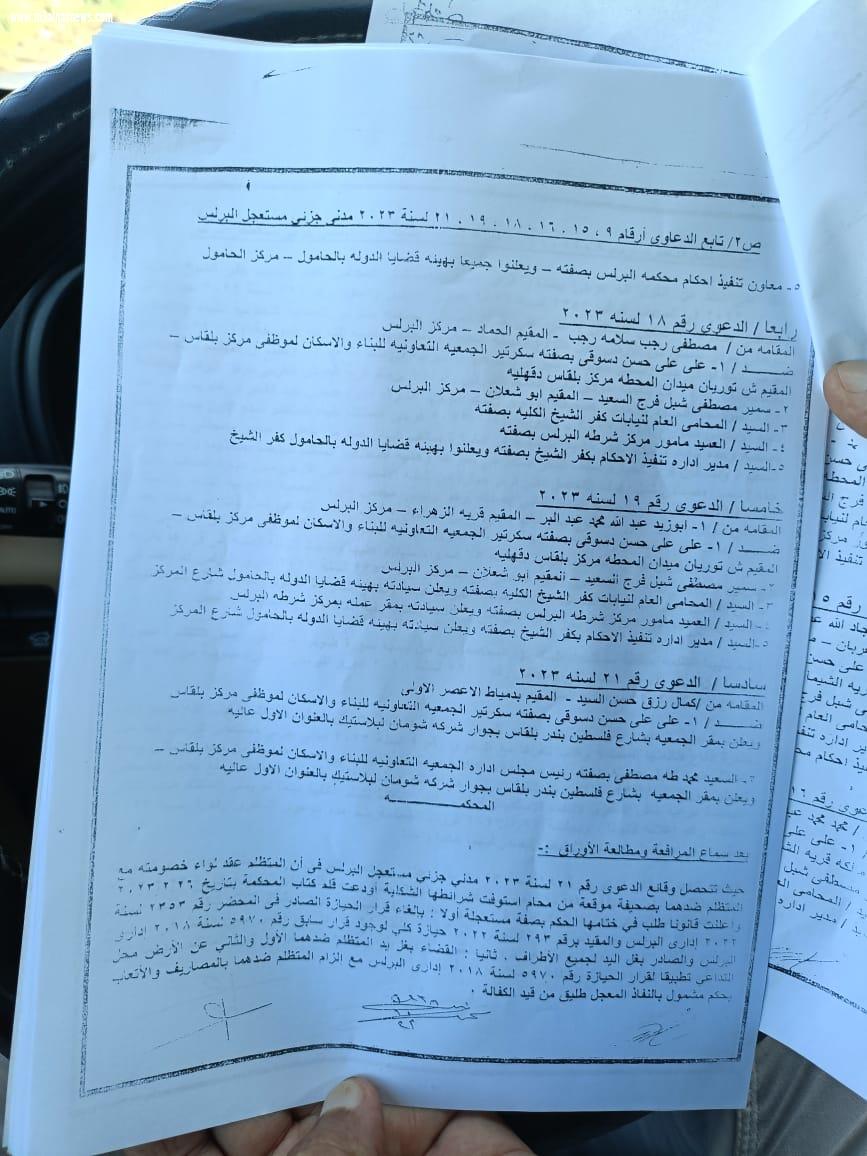 www.misrnews.com
ص٢/ تابع الدعاوى أرقام ٩ ، ١٥ ، ١٦ ، ١٨ ، ١٩ ، ٢١ لسنة ٢٠٢٣ مدنى جزئي مستعجل البرلس
٥- معاون تنفيذ احكام محكمه البرلس بصفته – ويعلنوا جميعا بهيئه قضايا الدوله بالحامول – مركز الحامول
رابعا / الدعوى رقم ١٨ لسنه ٢٠٢٣
المقامه من / مصطفى رجب سلامه رجب - المقيم الحماد – مركز البرلس
ضـــــد / ١- على على حسن دسوقى بصفته سكرتير الجمعيه التعاونيه للبناء والاسكان لموظفى مركز بلقاس –
المقيم ش توريان ميدان المحطه مركز بلقاس دقهليه
٢- سمير مصطفى شبل فرج السعيد – المقيم ابو شعلان – مركز البرلس
٣- السيد / المحامى العام لنيابات كفر الشيخ الكليه بصفته
٤- السيد / العميد مامور مركز شرطه البرلس بصفته
٥- السيد / مدير اداره تنفيذ الاحكام بكفر الشيخ بصفته ويعلنوا بهيئه قضايا الدوله بالحامول كفر الشيخ
خامسا / الدعوى رقم ١٩ لسنه ٢٠٢٣
المقامه من / ١- ابوزيد عبد الله محمد عبد البر – المقيم قريه الزهراء – مركز البرلس
ضـــــد / ١- على على حسن دسوقى بصفته سكرتير الجمعيه التعاونيه للبناء والاسكان لموظفى مركز بلقاس –
المقيم ش توريان ميدان المحطه مركز بلقاس دقهليه
٢- سمير مصطفى شبل فرج السعيد – المقيم ابو شعلان – مركز البرلس
٣- السيد / المحامى العام لنيابات كفر الشيخ الكليه بصفته ويعلن سيادته بهيئه قضايا الدوله بالحامول شارع المركز
٤- السيد / العميد مامور مركز شرطه البرلس بصفته ويعلن سيادته بمقر عمله بمركز شرطه البرلس
٥- السيد / مدير اداره تنفيذ الاحكام بكفر الشيخ بصفته ويعلن سيادته بهيئه قضايا الدوله بالحامول شارع المركز
سادسا / الدعوى رقم ٢١ لسنه ٢٠٢٣
المقامه من /كمال رزق حسن السيد - المقيم بدمياط الاعصر الاولى
ضـــــد / ١- على على حسن دسوقى بصفته سكرتير الجمعيه التعاونيه للبناء والاسكان لموظفى مركز بلقاس
ويعلن بمقر الجمعيه بشارع فلسطين بندر بلقاس بجوار شركه شومان لبلاستيك بالعنوان الاول عاليه
٢- السعيد محمد طه مصطفى بصفته رئيس مجلس اداره الجمعيه التعاونيه للبناء والاسكان لموظفى مركز بلقاس –
ويعلن بمقر الجمعيه بشارع فلسطين بندر بلقاس بجوار شركه شومان لبلاستيك بالعنوان الاول عاليه
المحكمـــــــــــه
بعد سماع المرافعة ومطالعة الأوراق :-
حيث تتحصل وقائع الدعوى رقم ٢١ لسنة ٢٠٢٣ مدني جزئي مستعجل البرلس فى أن المتظلم عقد لواء خصومته مع
المتظلم ضدهما بصحيفة موقعة من محام استوفت شرائطها الشكلية أودعت قلم كتاب المحكمة بتاريخ ٢٦ ٢ ٢٠٢٣
وأعلنت قانونا طلب في ختامها الحكم بصفة مستعجلة أولا : بالغاء قرار الحيازة الصادر في المحضر رقم ٢٣٥٣ لسنة
٢٠٢٢ إدارى البرلس والمقيد برقم ٢٩٣ لسنة ٢٠٢٢ حيازة كلي لوجود قرار سابق رقم ٥٩٧٠ لسنة ٢٠١٨ إدارى
البرلس والصادر بغل اليد لجميع الأطراف . ثانيا : القضاء بغل يد المتظلم ضدهما الأول والثاني عن الأرض محل
التداعي تطبيقا لقرار الحيازة رقم ٥٩٧٠ لسنة ٢٠١٨ إدارى البرلس مع الزام المتظلم ضدهما بالمصاريف والأتعاب
بحكم مشمول بالنفاذ المعجل طليق من قيد الكفالة .